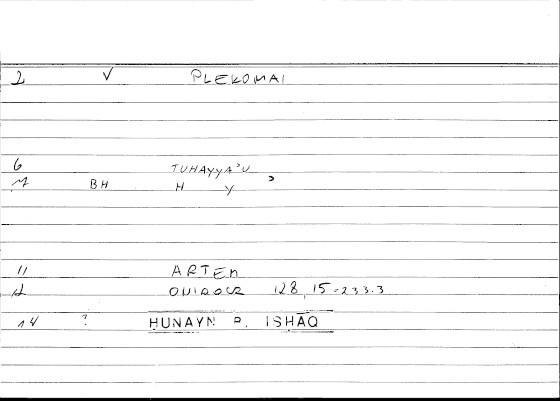 2 V PLEKOMAI
6 TUHAYYA'U
7 BH H Y ʾ
11 ARTEM
12 128,15=233.3
14 ? HUNAYN B. ISHĀQ